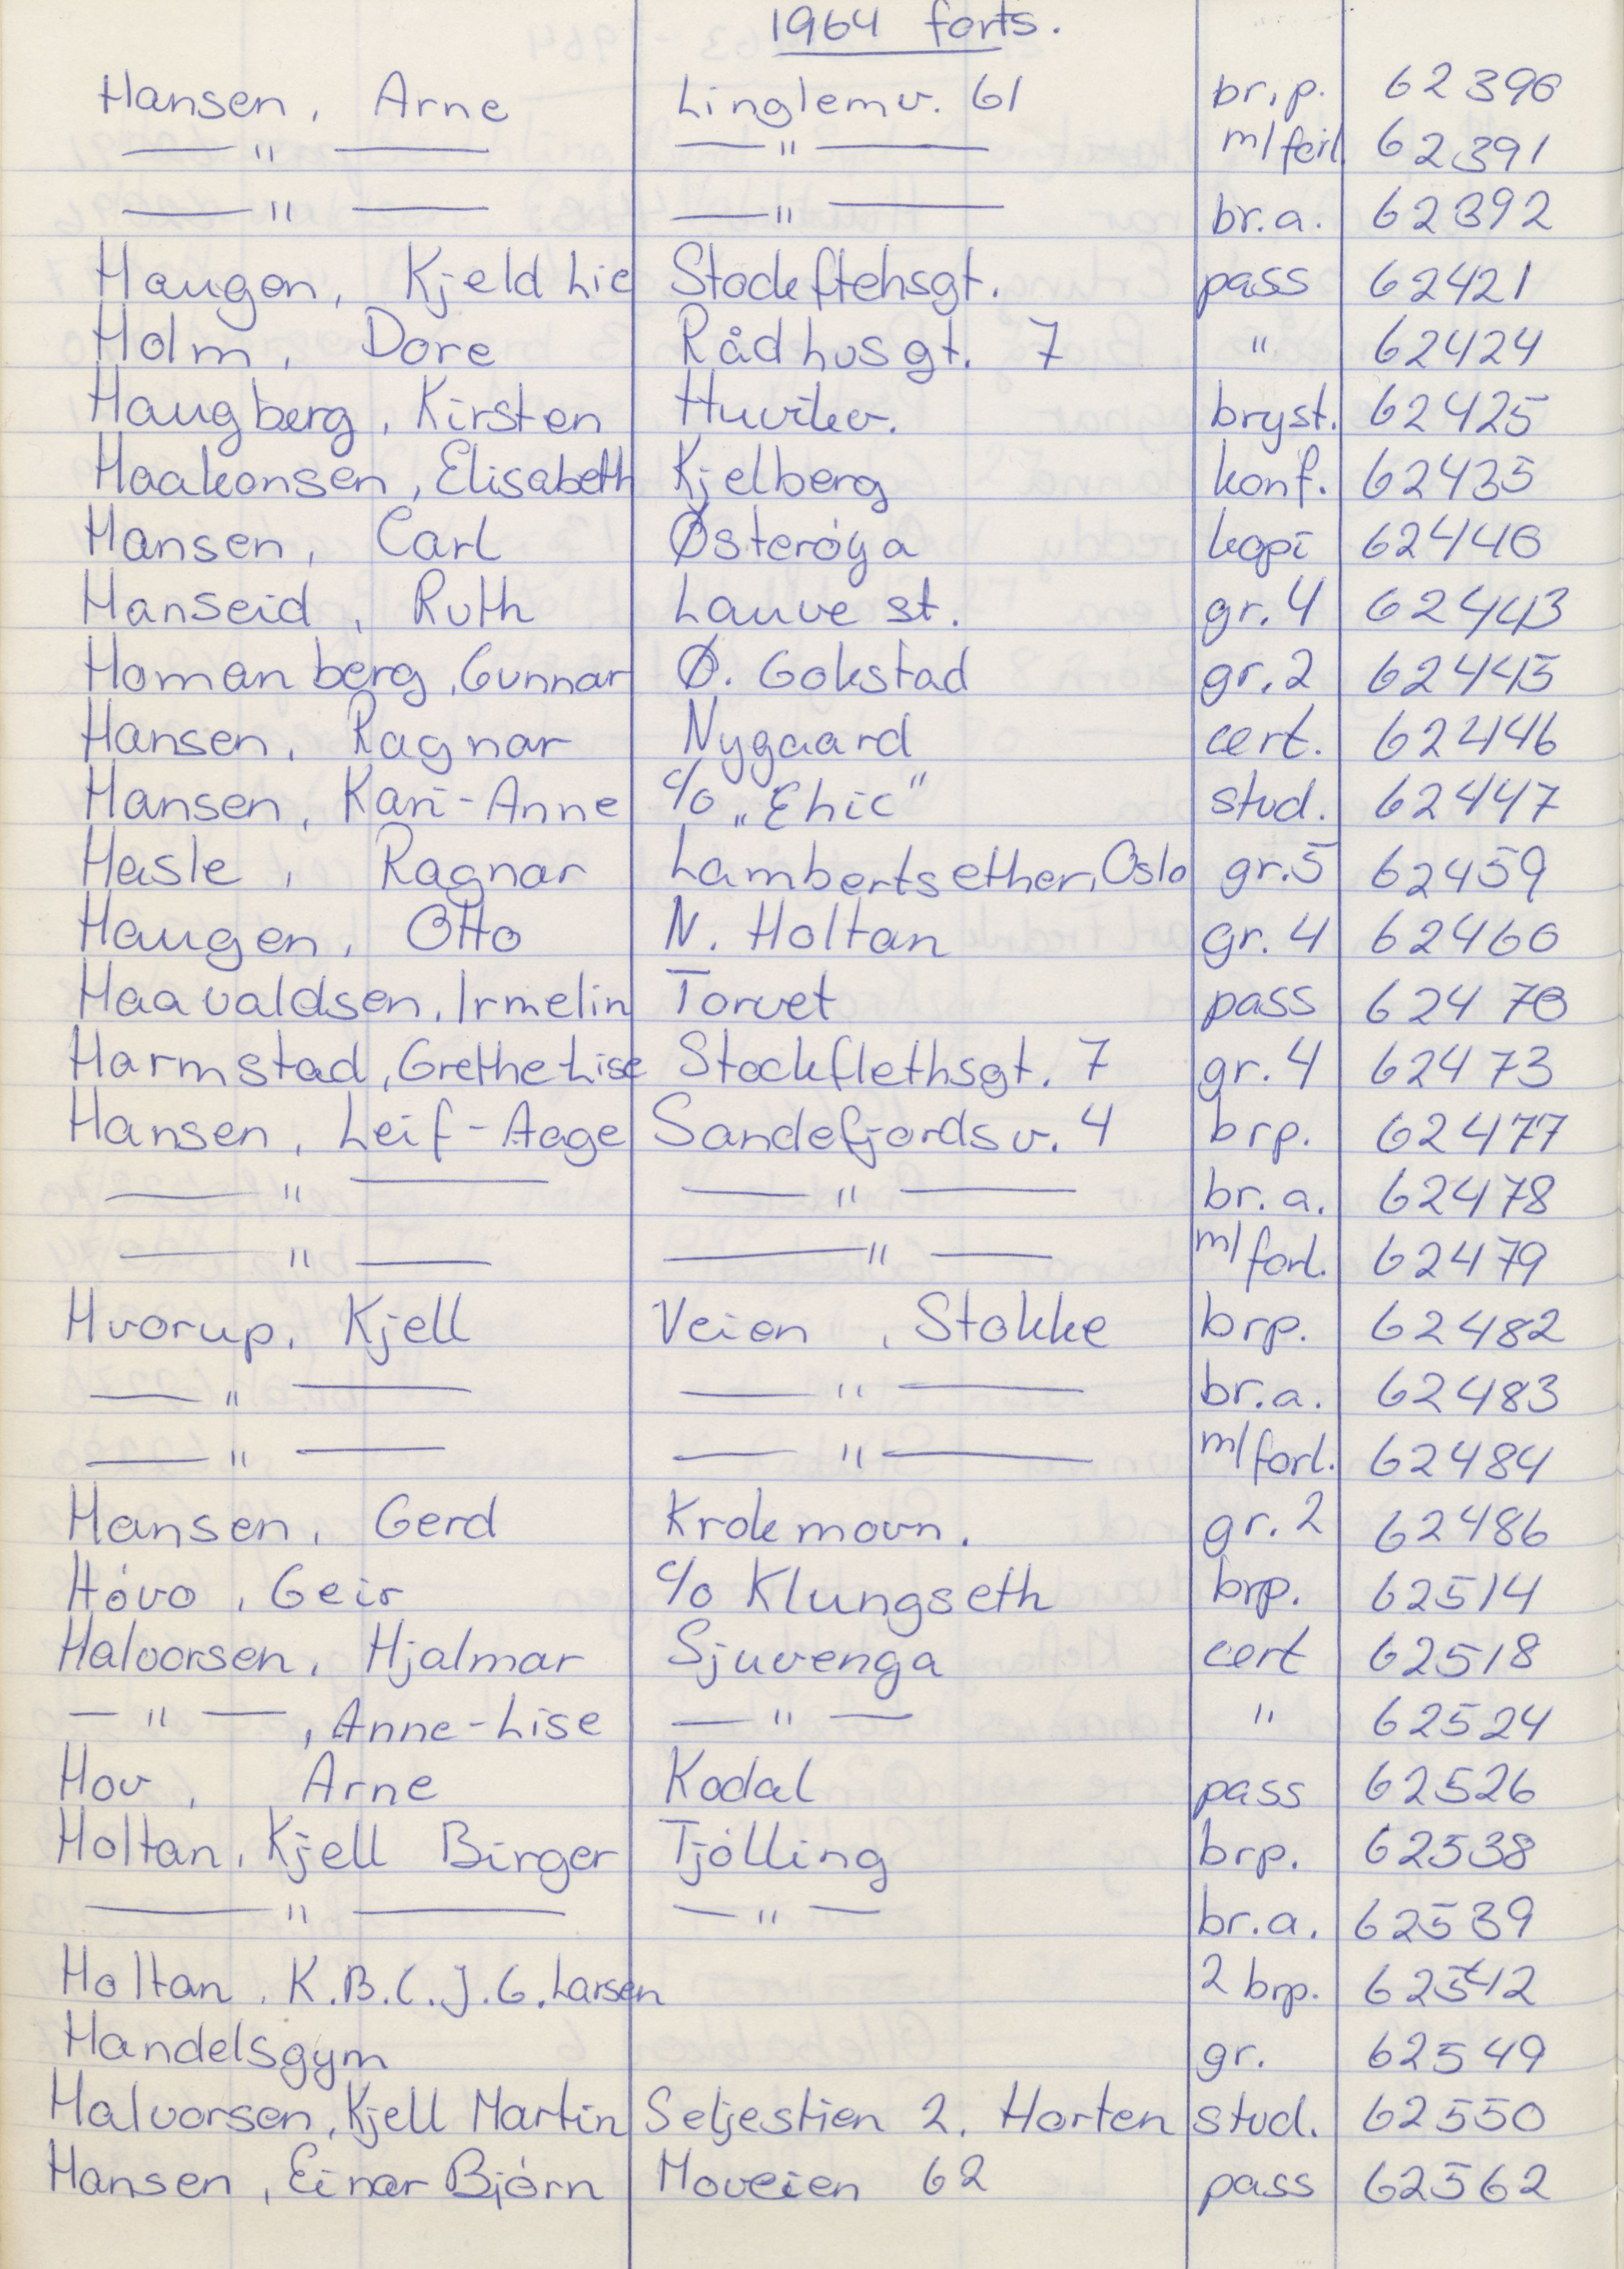 1964 forts.
Hansen, Arne Linglemv. 61 br.p. 62390
— " — — " — m/feil. 62391
— " — — " — br.a. 62392
Haugen, Kjeld Lie Stockftehsgt. pass 62421
Holm, Dore Rådhusgt. 7 " 62424
Haugberg, Kirsten bryst. 62425
Haakonsen, Elisabeth Kjelberg konf. 62435
Hansen, Carl Østerøya kopi 62440
Hanseid, Ruth Lauve st. gr. 4 62443
Homanberg, Gunnar Ø. Gokstad gr. 2 62445
Hansen, Ragnar Nygaard cert. 62446
Hansen, Kari-Anne c/o „Ehic" stud. 62447
Hasle, Ragnar Lambertsether, Oslo gr. 5 62459
Haugen, Otto N. Holtan gr. 4 62460
Haavaldsen, Irmelin Torvet pass 62470
Harmstad, Grethe Lise Stockflethsgt. 7 gr. 4 62473
Hansen, Leif-Aage Sandefjordsv. 4 brp. 62477
— " — — " — br. a. 62478
— " — — " — m/forl. 62479
Hvorup, Kjell Veien, Stokke brp. 62482
— " — — " — br.a. 62483
— " — — " — m/forl. 62484
Hansen, Gerd Krokemovn. gr. 2 62486
Høvo, Geir c/o Klungseth brp. 62514
Halvorsen, Hjalmar Sjuvenga cert 62518
— " —, Anne-Lise — " — " 62524
Hov, Arne Kodal pass 62526
Holtan, Kjell Birger Tjølling brp. 62538
— " — — " — br.a. 62539
Holtan, K.B.C.J.G. Larsen 2 brp. 62542
Handelsgym gr. 62549
Halvorsen, Kjell Martin Seljestien 2. Horten stud. 62550
Hansen, Einar Bjørn Moveien 62 pass 62562